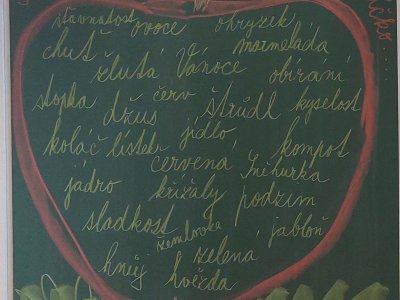 šťavnatost ovoce ohryzek
chuť marmeláda
žlutá Vánoce obírání
stopka červ štrúdl kyselost
džus jídlo
koláč lístek kompot
červená Sněhurka
jádro křížaly podzim
sladkost žemlovka jabloň
hnůj hvězda zelená